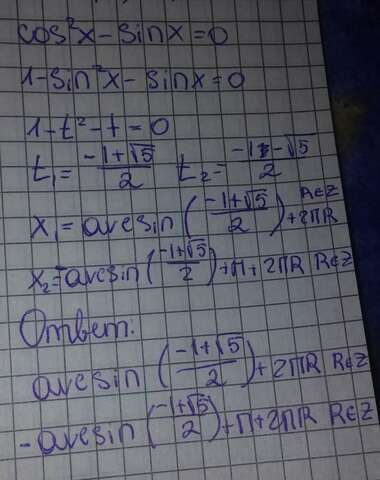 cos²x - sinx = 0
1 - sin²x - sinx = 0
1 - t² - t = 0
t₁ = (-1+√5)/2 t₂ = (-1-√5)/2
x₁ = arcsin((-1+√5)/2) + 2πk k∈Z
x₂ = -arcsin((-1+√5)/2) + π + 2πk k∈Z
Ответ:
arcsin((-1+√5)/2) + 2πk k∈Z
-arcsin((-1+√5)/2) + π + 2πk k∈Z